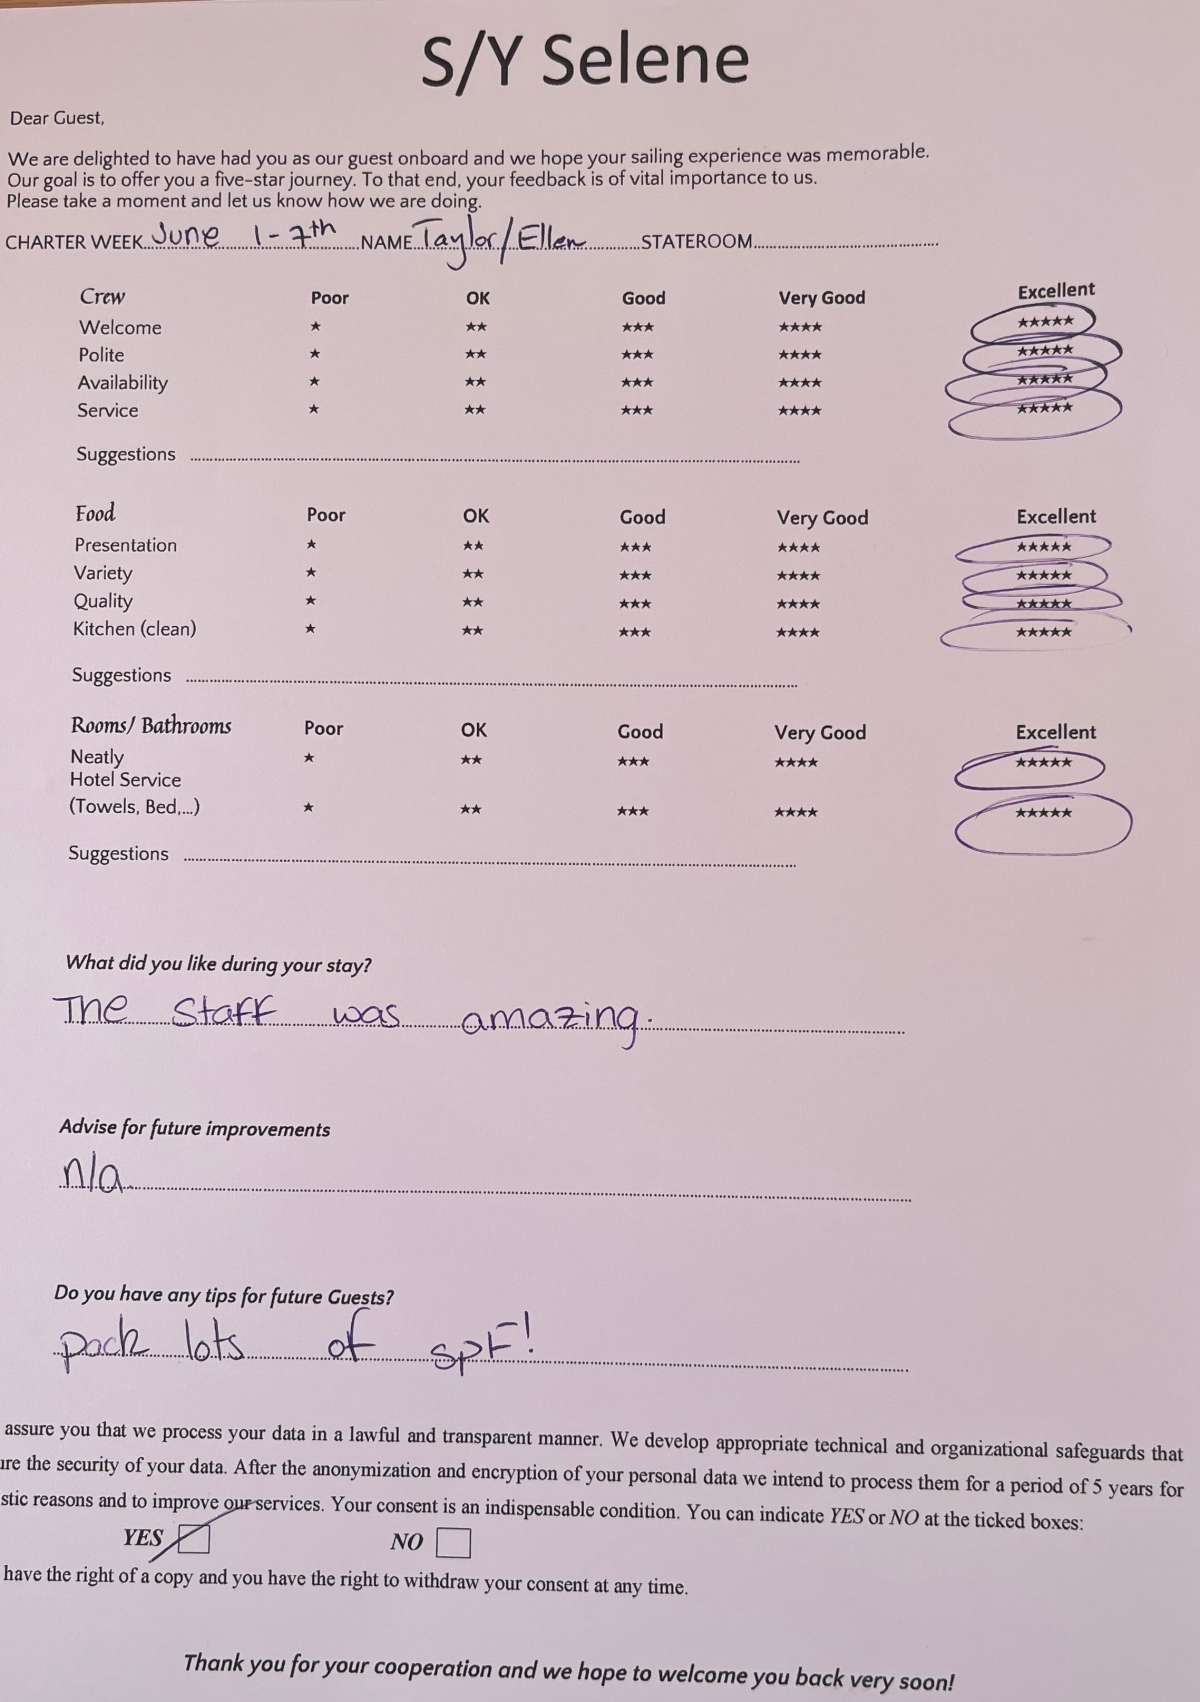 S/Y Selene
Dear Guest,
We are delighted to have had you as our guest onboard and we hope your sailing experience was memorable.
Our goal is to offer you a five-star journey. To that end, your feedback is of vital importance to us.
Please take a moment and let us know how we are doing.
CHARTER WEEK June 1-7th NAME Taylor/Ellen STATEROOM
Crew Poor OK Good Very Good Excellent
Welcome ★ ★★ ★★★ ★★★★ ★★★★★
Polite ★ ★★ ★★★ ★★★★ ★★★★★
Availability ★ ★★ ★★★ ★★★★ ★★★★★
Service ★ ★★ ★★★ ★★★★ ★★★★★
Suggestions
Food Poor OK Good Very Good Excellent
Presentation ★ ★★ ★★★ ★★★★ ★★★★★
Variety ★ ★★ ★★★ ★★★★ ★★★★★
Quality ★ ★★ ★★★ ★★★★ ★★★★★
Kitchen (clean) ★ ★★ ★★★ ★★★★ ★★★★★
Suggestions
Rooms/ Bathrooms Poor OK Good Very Good Excellent
Neatly ★ ★★ ★★★ ★★★★ ★★★★★
Hotel Service
(Towels, Bed,...) ★ ★★ ★★★ ★★★★ ★★★★★
Suggestions
What did you like during your stay?
The staff was amazing.
Advise for future improvements
n/a
Do you have any tips for future Guests?
pack lots of SPF!
assure you that we process your data in a lawful and transparent manner. We develop appropriate technical and organizational safeguards that
the security of your data. After the anonymization and encryption of your personal data we intend to process them for a period of 5 years for
reasons and to improve our services. Your consent is an indispensable condition. You can indicate YES or NO at the ticked boxes:
YES NO
have the right of a copy and you have the right to withdraw your consent at any time.
Thank you for your cooperation and we hope to welcome you back very soon!